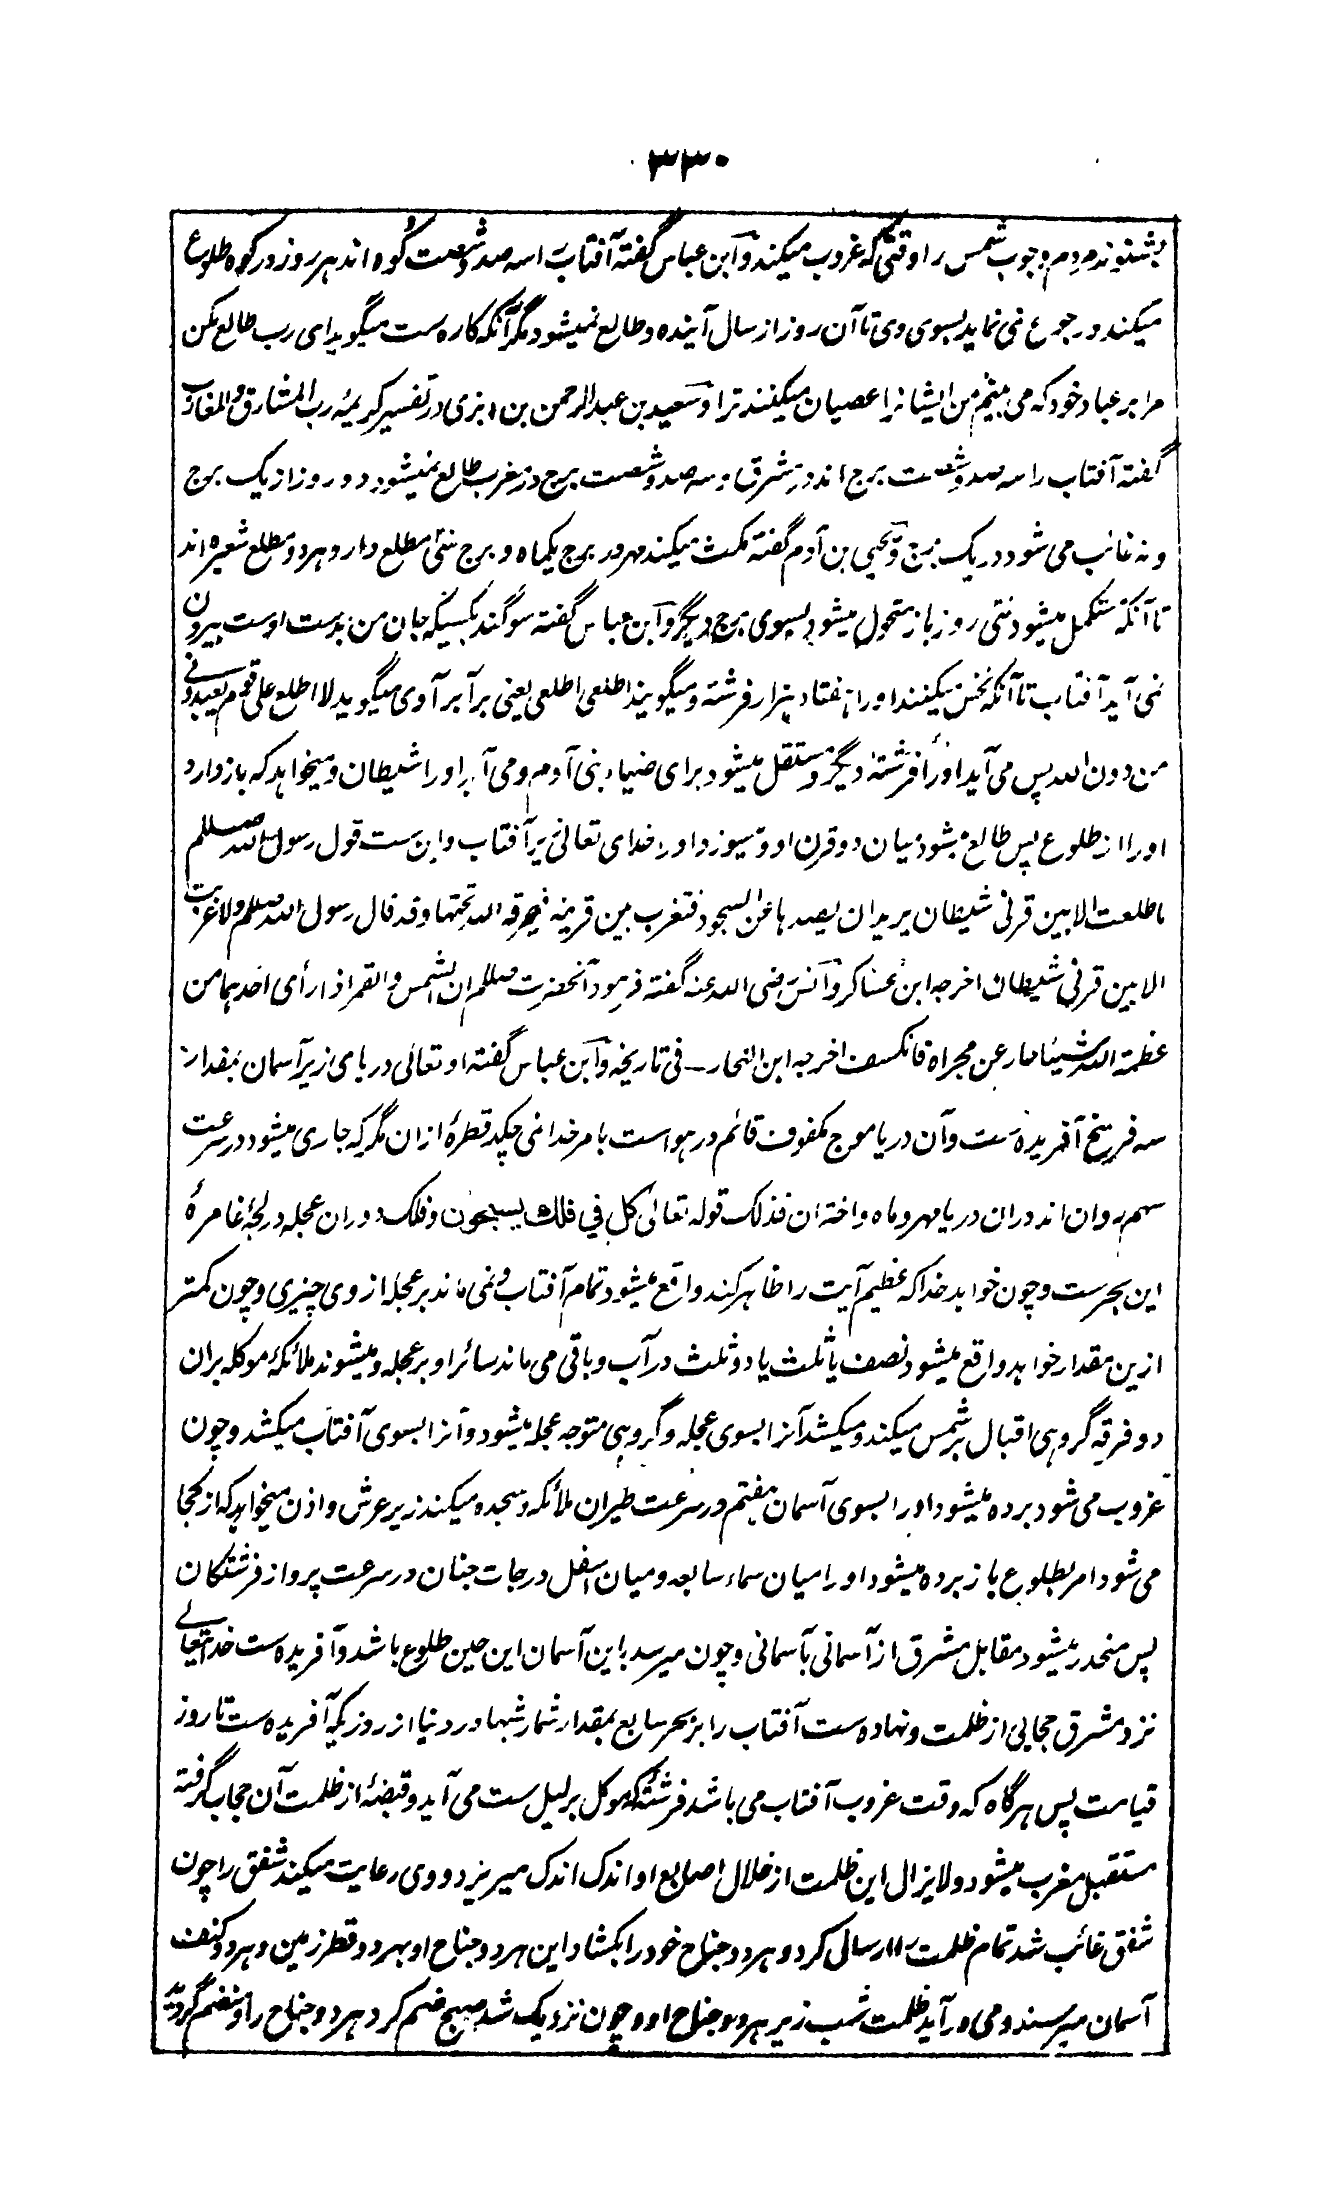 ۳۳۰
بشنوند مردم وجوب شمس را وقتی که غروب میکند و ابن عباس گفته آفتاب را سه صد و شصت کوه اند هر روز در کوه طلوع
میکند و رجوع نمی نماید بسوی وی تا آن روز از سال آینده و طالع نمیشود مگر آنکه کاره ست میگوید ای رب طالع مکن
مرا بر عباد خود که می بینم من ایشانرا عصیان میکنند ترا و سعید بن عبدالرحمن بن ابزی در تفسیر کریمۂ رب المشارق والمغارب
گفته آفتاب را سه صد و شصت برج اند در مشرق و سه صد و شصت برج در مغرب طالع نمیشود دو روز از یک برج
و نه غائب می شود در یک برج و یحیی بن آدم گفته مکث میکند مهر در برج یکماه و برج سی مطلع دارد و هر دو مطلع شعیره اند
تا آنکه متکمل میشود سی روز باز متحول میشود بسوی برج دیگر و ابن عباس گفته سوگند بکسیکه جان من بدست اوست بیرون
نمی آید آفتاب تا آنکه نخس میکنند او را هفتاد هزار فرشته و میگویند اطلعی اطلعی یعنی برآ برآ وی میگوید لا اطلع علی قوم یعبدونی
من دون الله پس می آید او را فرشتۂ دیگر و مستقل میشود برای ضیاء بنی آدم و می آید او را شیطان و میخواهد که باز دارد
او را از طلوع پس طالع میشود میان دو قرن او و میسوزد او را خدای تعالی زیر آفتاب و این ست قول رسول الله صلعم
ما طلعت الا بین قرنی شیطان یریدان یصدها عن السجود فتغرب بین قرنیه فیحرقه الله تحتها و قد قال رسول الله صلعم ولا غربت
الا بین قرنی شیطان اخرجه ابن عساکر و انس رضی الله عنه گفته فرمود آنحضرت صللم ان الشمس والقمر اذا رأی احدهما من
عظمة الله شیئا حار عن مجراه فانکسف اخرجه ابن النجار فی تاریخه و ابن عباس گفته او تعالی دریای زیر آسمان بمقدار
سه فرسخ آفریده ست و آن دریا موج مکفوف قائم در هواست بامر خدا نمی چکد قطرۂ ازان مگر که جاری میشود در سرعت
سهم روان اند دران دریا مهر و ماه و اختران فذلک قوله تعالی کل فی فلک یسبحون و فلک دوران عجله در لجۂ غامرۂ
این بحرست و چون خواهد خدا که عظیم آیت را ظاهر کند واقع میشود تمام آفتاب و نمی ماند بر عجله از وی چیزی و چون کمتر
ازین مقدار خواهد واقع میشود نصف یا ثلث یا دو ثلث در آب و باقی می ماند سائر او بر عجله و میشوند ملائکۂ موکله بران
دو فرقه گروهی اقبال بر شمس میکند و میکشد آنرا بسوی عجله و گروهی متوجه عجله میشود و آنرا بسوی آفتاب میکشد و چون
غروب می شود برده میشود او را بسوی آسمان هفتم در سرعت طیران ملائکه و سجده میکند زیر عرش و اذن میخواهد که از کجا
می شود امر بطلوع باز برده میشود او را میان سماء سابعه و میان اسفل درجات جنان در سرعت پرواز فرشتگان
پس منحدر میشود مقابل مشرق از آسمانی بآسمانی و چون میرسد باین آسمان این حین طلوع باشد و آفریده ست خدای تعالی
نزد مشرق حجابی از ظلمت و نهاده ست آفتاب را بر بحر سابع بمقدار شمار شبها در دنیا از روزیکه آفریده ست تا روز
قیامت پس هرگاه که وقت غروب آفتاب می باشد فرشتۂ که موکل بر لیل ست می آید و قبضۂ از ظلمت آن حجاب گرفته
مستقبل مغرب میشود و لایزال این ظلمت از خلال اصابع او اندک اندک میریزد و وی رعایت میکند شفق را چون
شفق غائب شد تمام ظلمت را ارسال کرد و هر دو جناح خود را بکشاد این هر دو جناح او بهر دو قطر زمین و هر دو کنف
آسمان میرسند و می درآید ظلمت شب زیر هر دو جناح او و چون نزدیک شد صبح ضم کرد هر دو جناح را و منضم گردید